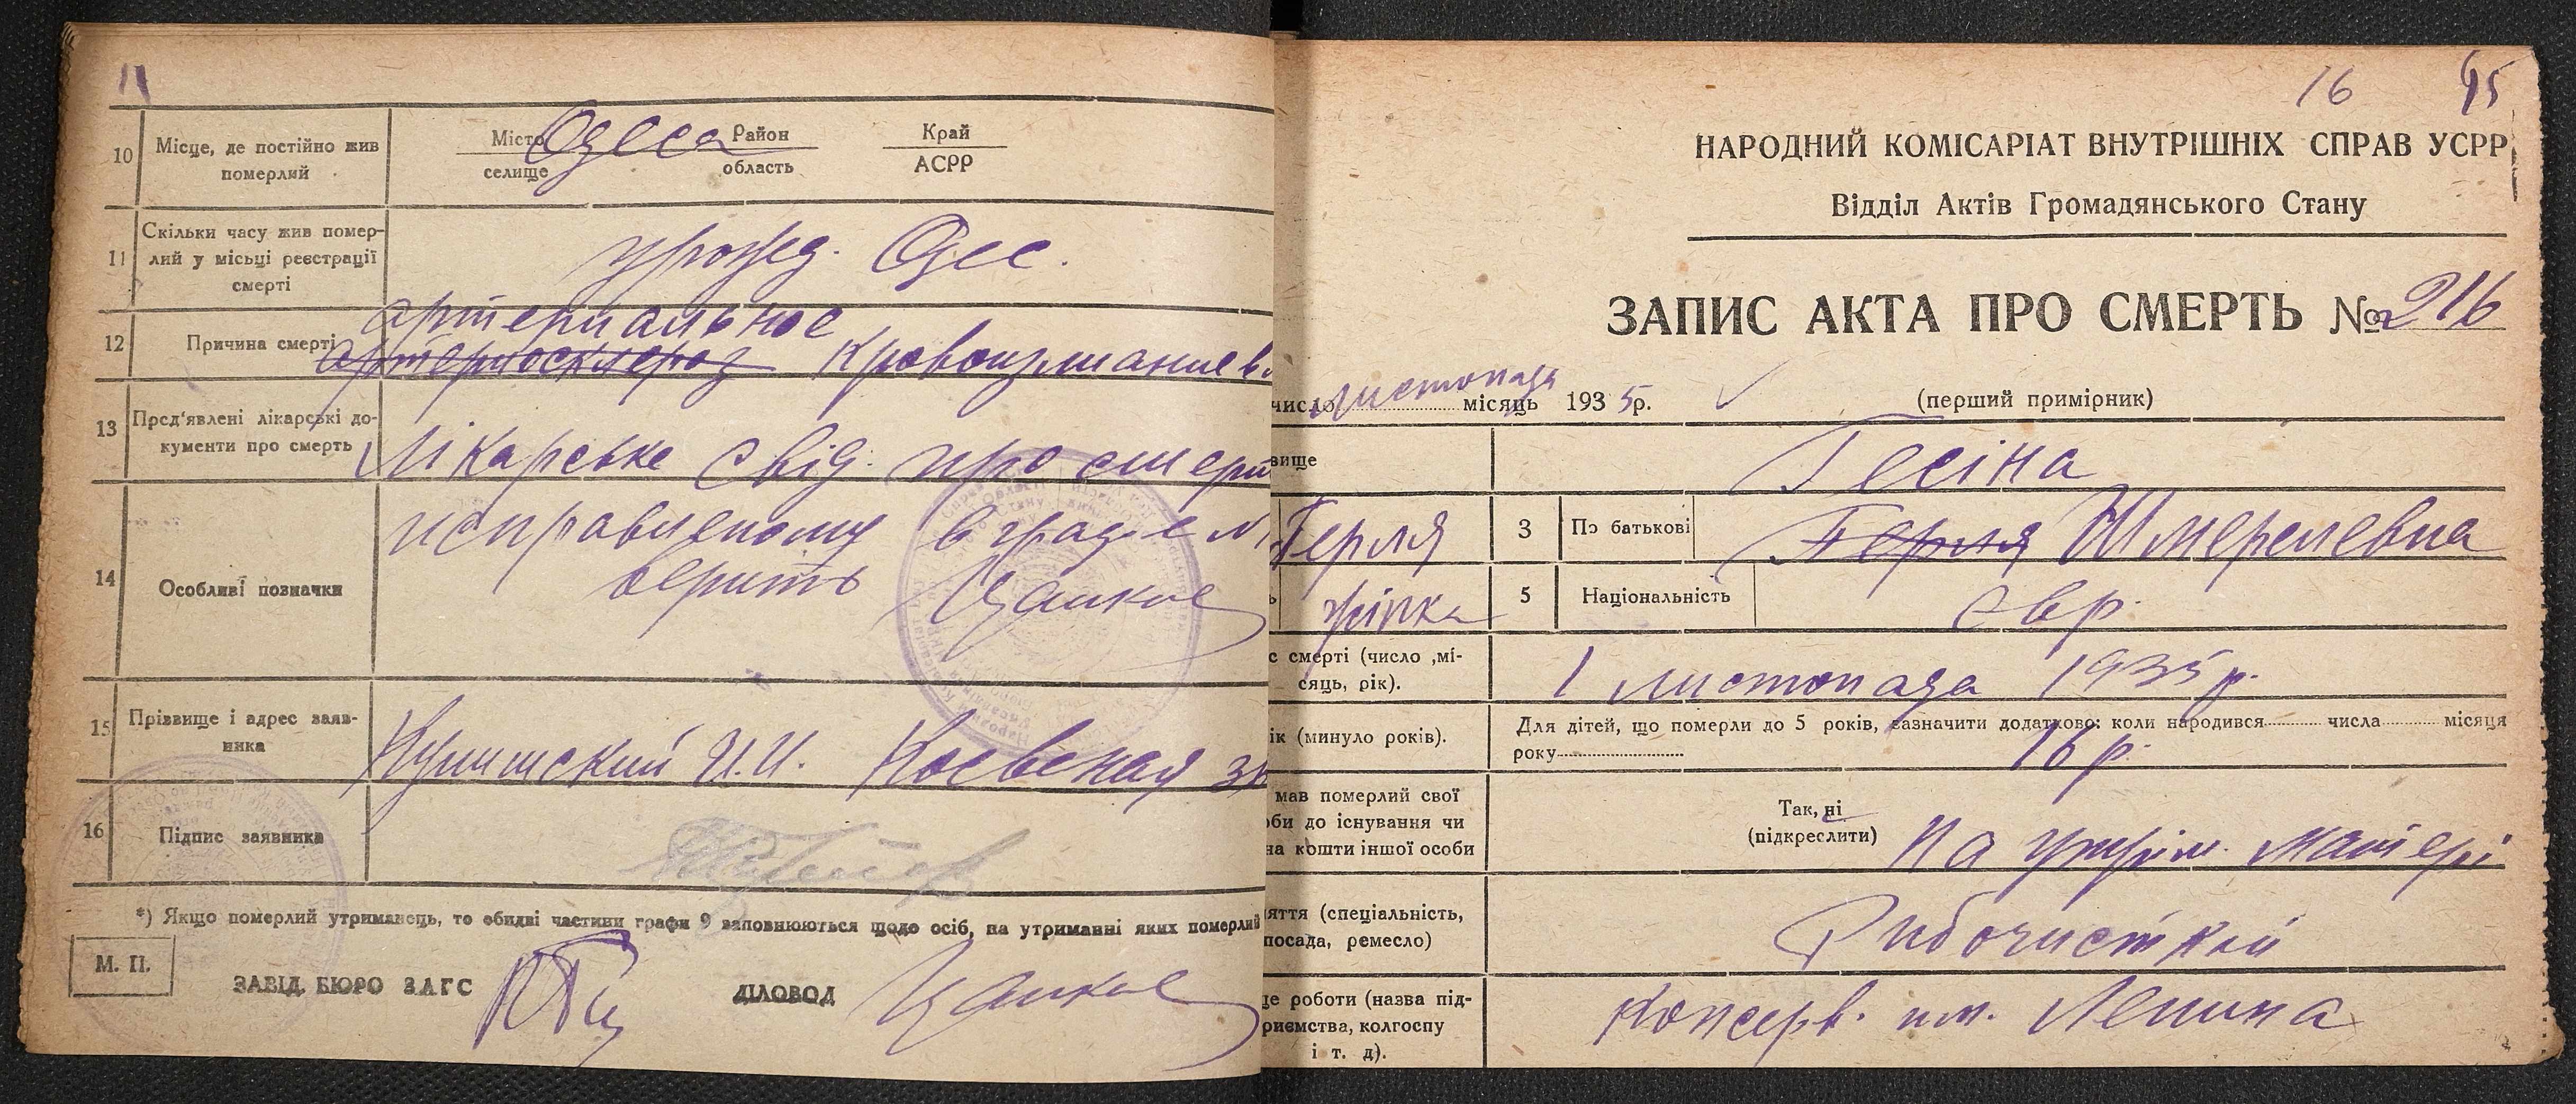 10
Місце, де постійно жив померлий
Місто селище
Одеса
Район область
Край АСРР
11
Скільки часу жив померлий у місьці реєстрації смерті
урожд. Одес.
12
Причина смерті
артериальное
артериосклероз кровоизлиание в
13
Пред'явлені лікарські документи про смерть
Лікарське свід. про смерт
14
Особливі позначки
исправленому в граде №
верить
15
Прізвище і адрес заявника
И.И.
16
Підпис заявника
*) Якщо померлий утриманець, то обидві частини графи 9 заповнюються щодо осіб, на утриманні яких померлий
М. П.
ЗАВІД. БЮРО ЗАГС
ДІЛОВОД
16
95
НАРОДНИЙ КОМІСАРІАТ ВНУТРІШНІХ СПРАВ УСРР
Відділ Актів Громадянського Стану
ЗАПИС АКТА ПРО СМЕРТЬ № 216
число листопада місяць 1935р.
(перший примірник)
вище
Гесіна
Герля
3
По батькові
Герля Шмерелевна
жінка
5
Національність
євр.
с смерті (число ,місяць, рік).
1 листопада 1935 р.
ік (минуло років).
Для дітей, що померли до 5 років, зазначити додатково: коли народився числа місяця
року
16 р.
мав померлий свої
оби до існування чи
на кошти іншої особи
Так, ні
(підкреслити)
На утрим. матері
яття (спеціальність,
посада, ремесло)
Рибочисткой
це роботи (назва під-
риємства, колгоспу
і т. д).
Консерв. им. Ленина